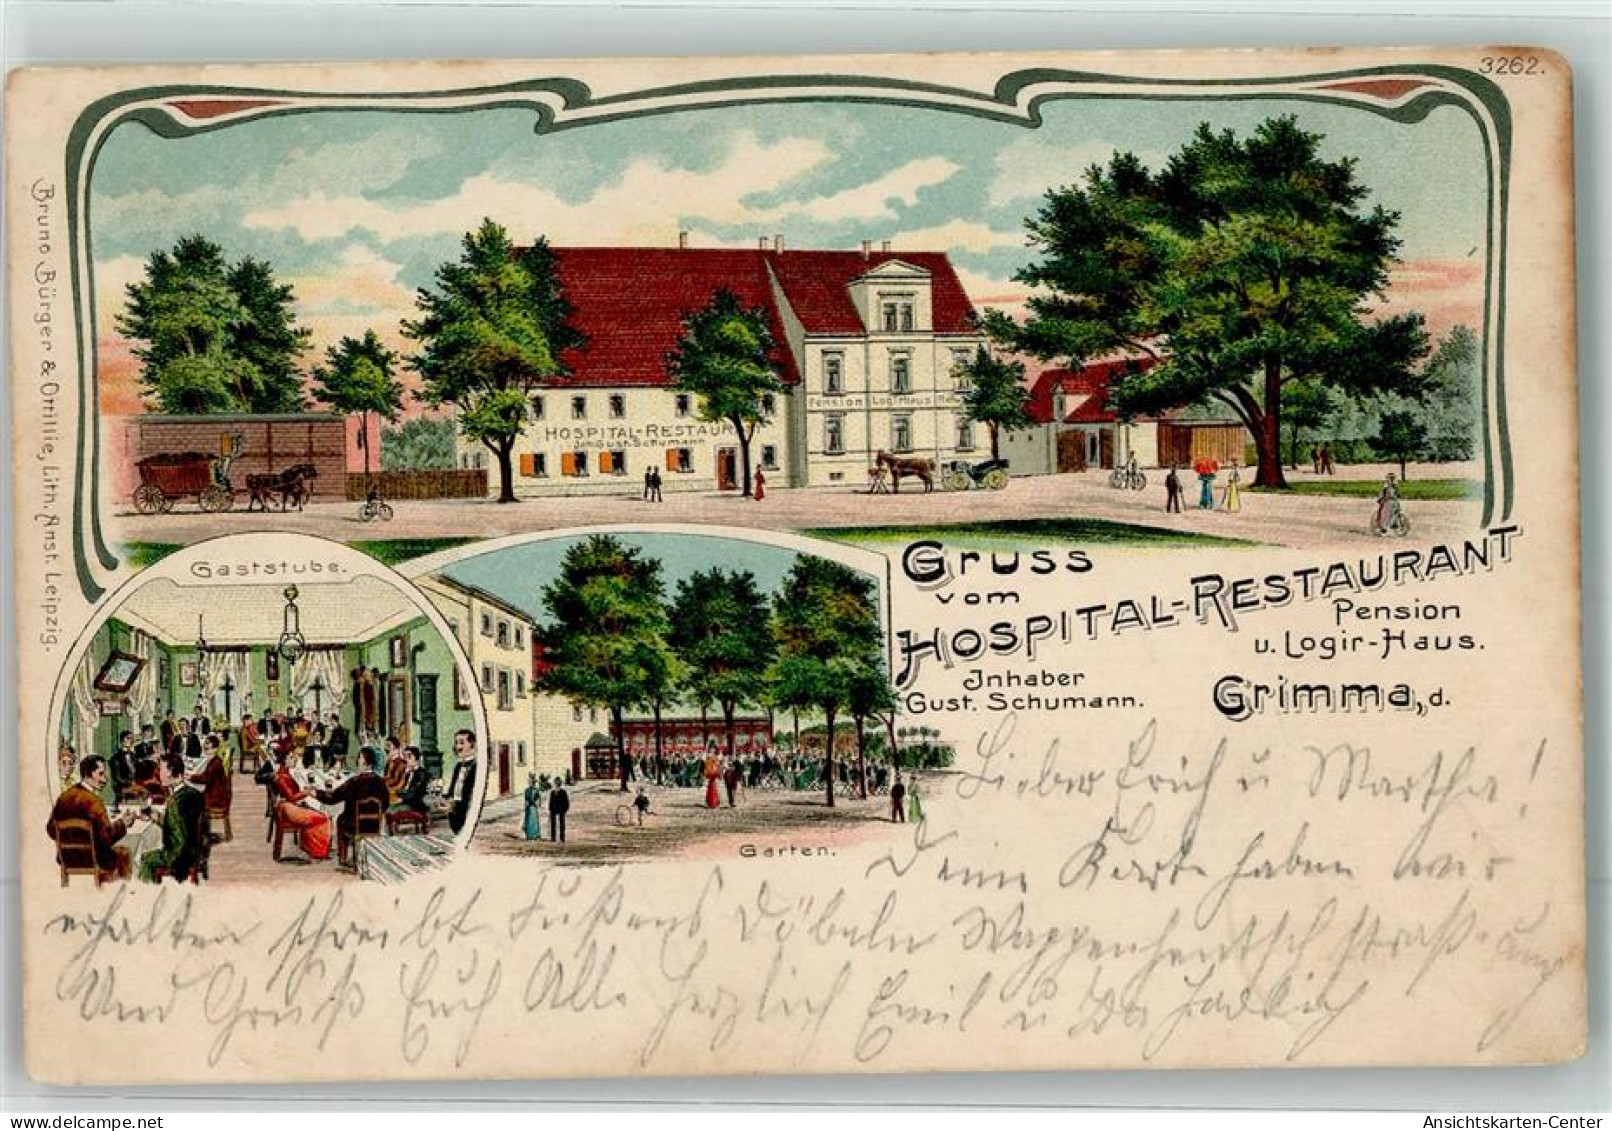 3262.
Bruno Bürger & Ottillie, Lith. Anst. Leipzig.
HOSPITAL-RESTAUR
Inh. Gust. Schumann
Pension Logirhaus
Gaststube.
Garten.
Gruss
vom
HOSPITAL-RESTAURANT
Pension
u. Logir-Haus.
Inhaber
Gust. Schumann.
Grimma, d.
Lieber Erich u Martha!
Deine Karte haben wir
erhalten schreibt Döbeln straß
Und Gruß Euch Alle herzlich Emil u
Ansichtskarten-Center